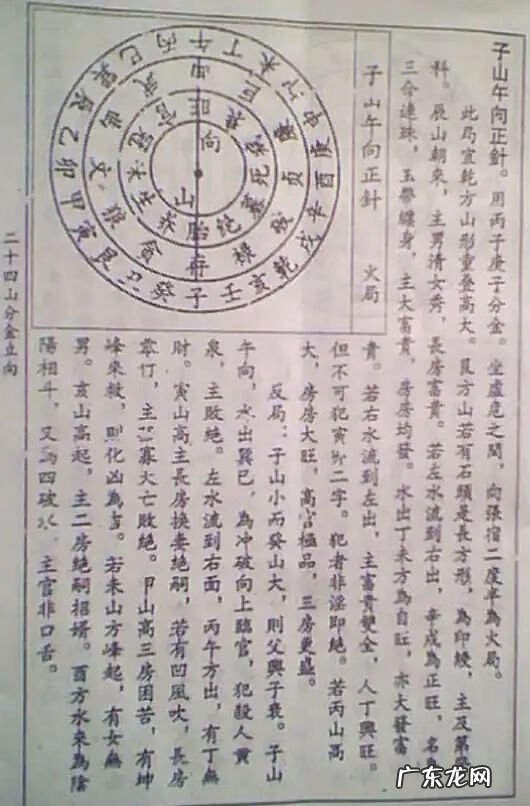 子山午向正針。用丙子庚子分金。坐虛危之間，向張宿二度半為火局。
此局宜乾方山形重叠高大。艮方山若有石頭是長方形，為印綬，主及第登
科。辰山朝來，主男清女秀，長房富貴。若左水流到右出，辛戌為正旺，名為
三合連珠，玉帶纏身，主大富貴，房房均發。水出丁未方為自旺，亦大發富
子山午向正針 火局
向
山
冠 旺 衰 死 墓 絕 胎 养 生 沐
貪 狼 文
子 壬 亥 乾 戌 辛 酉 庚 申 未 丁 午 丙 巳 巽 辰 乙 卯 甲 寅 艮 丑 癸
貴。若右水流到左出，主富貴雙全，人丁興旺。
但不可犯寅卯二字。犯者非淫即絕。若丙山高
大，房房大旺，高官極品，三房更盛。
反局：子山小而癸山大，則父興子衰。子山
午向，水出巽巳，為冲破向上臨官，犯殺人黃
泉，主敗絕。左水流到右面，丙午方出，有丁無
財。寅山高主長房換妻絕嗣，若有凹風吹，長房
主寡夭亡敗絕。甲山高三房困苦，有坤
峰來救，則化凶為吉。若未山方峰起，有女無
男。亥山高起，主二房絕嗣招婿。酉方水來為陰
陽相斗，又為四破水，主官非口舌。
二十四山分金立向
广东龙网